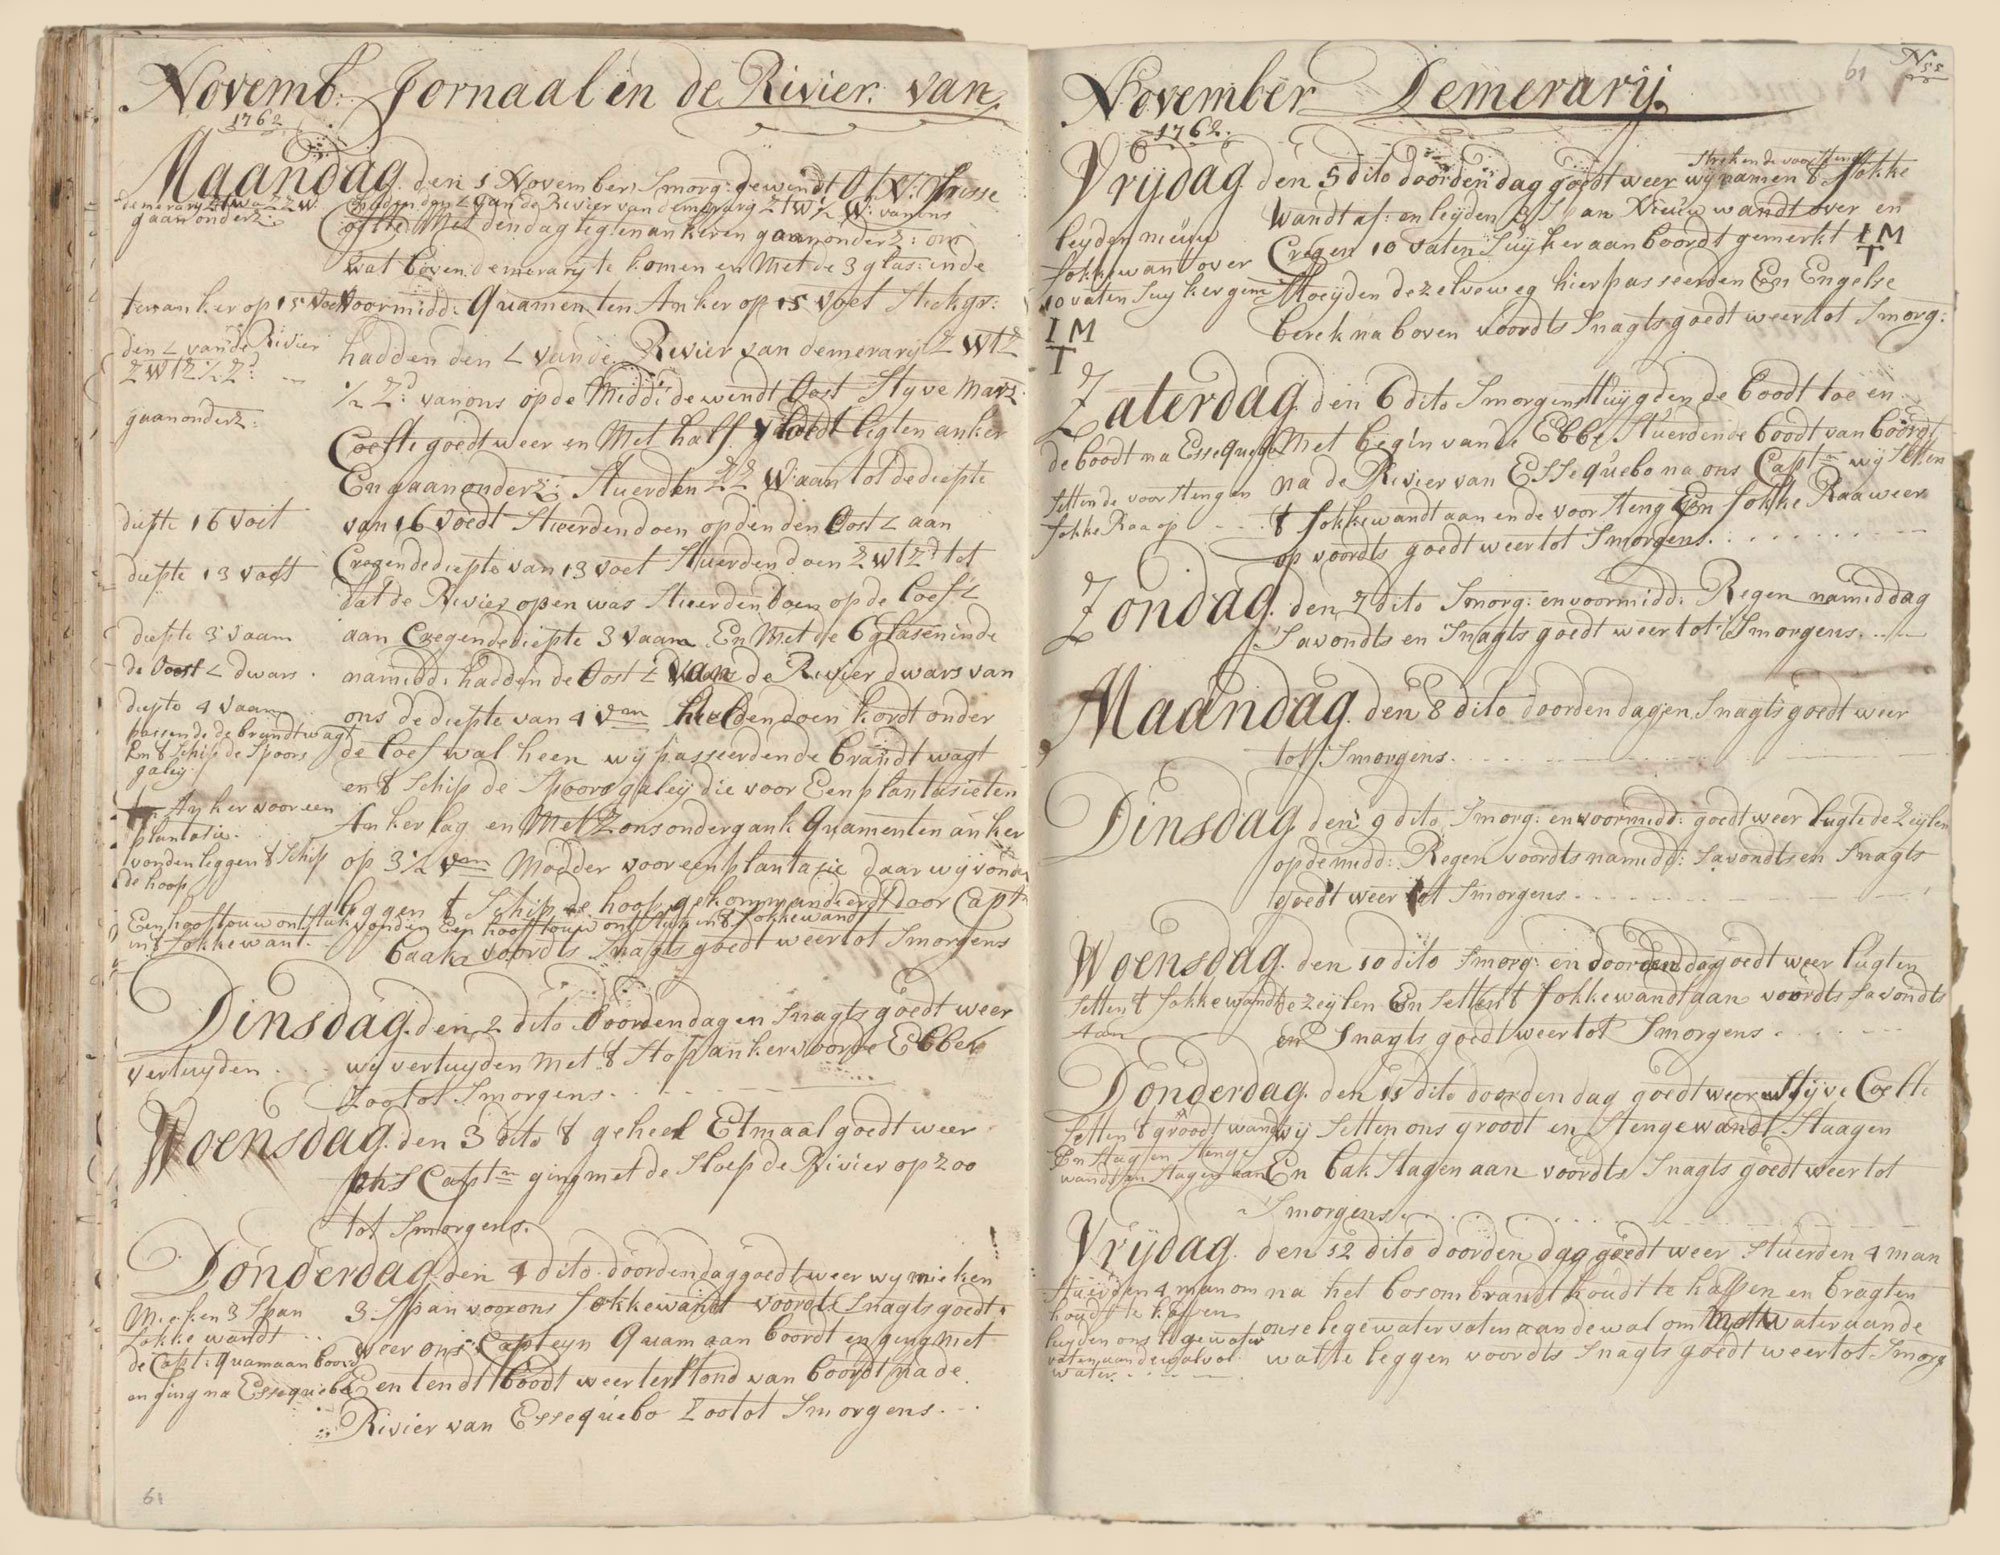 Novemb: Jornaal in de Rivier van
1762
Maandag den 1 November Smorg: de windt O t N: frisse
demerarij ZtW a ZZW. hadden den L van de Rivier van demerarij ZtW ½ W: van ons
gaan onderz: Coelte Met den dag ligten anker en gaan onderz: om
wat boven demerarij te komen en Met de 3 glas: in de
ten anker op 15 voet voormidd: Quamen ten Anker op 15 voet Stek gr:
den L van de Rivier hadden den L van de Rivier van demerarij ZWtZ
ZWtZ ½ Z: ½ Z: van ons op de Midd: de windt Oost Styve Marz:
gaan onderz: Coelte goedt weer en Met half vloedt ligten anker
En gaan onderz: Stuerden ZZW: aan tot de diepte
diepte 16 voet van 16 voedt Stuerden doen op den den Oost L aan
diepte 13 voet Cregen de diepte van 13 voet Stuerden doen ZWtZ tot
dat de Rivier open was Stuerden doen op de loef L
diepte 3 vaam aan Cregen de diepte 3 vaam En Met de 6 glasen in de
de Oost L dwars namidd: hadden de Oost L van de Rivier dwars van
diepte 4 vaam ons de diepte van 4 vm hielden doen kordt onder
passende de brandtwagt de loef wal heen wij passeerden de brandt wagt
En t Schip de Spoors en t Schip de Spoors galeij die voor Een plantasie ten
galeij
ten Anker voor een Anker lag en Met Zons ondergank Quamen ten anker
plantatie.
vonden leggen t Schip op 3½ vm Modder voor een plantasie daar wij vonden
de hoop leggen t Schip de hoop gekommandierdt door Capt
Een hooftouw onstuk vonden Een hooftouw onstuk in t fokkewandt
in t fokkewant. baak voordts Snagts goedt weer tot Smorgens
Dinsdag den 2 dito doorden dag en Snagts goedt weer
vertuyden wij vertuyden Met t Stopanker voor de Ebbe
Zoo tot Smorgens.
Woensdag den 3 dito t geheel Etmaal goedt weer
ons Captn ging met de Sloep de Rivier op zoo
tot Smorgens.
Donderdag den 4 dito doorden dag goedt weer wij mieken
Mieken 3 Span 3 Span voor ons fokkewandt voordts Snagts goedt
fokke wandt weer ons Capteyn Quam aan boordt en ging met
de Capt: quam aan boord Een tendt boodt weer terstond van boordt na de
en ging na Essequebo Rivier van Essequebo Zoo tot Smorgens.
61
November Demerarij
1762.
61
N 55
Streken de voorstenge
Vrijdag den 5 dito doorden dag goedt weer wij namen t fokke
wandt af: en leyden 3 S an Nieuw wandt over en
leyden nieuw Cregen 10 vaten Suyker aan boordt gemerkt I M T
fokkewant over
10 vaten Suyker gem Moeyden dezelve weg hier passeerden En Engelse
I M berek na boven voordts Snagts goedt weer tot Smorg:
T
Zaterdag den 6 dito Smorgens tuygden de boodt toe en
de boodt na Essequebo Met begin van de Ebbe Stuerden de boodt van boordt
Setten de voorstenge en na de Rivier van Essequebo na ons Captn wij Setten
fokke Raa op t fokkewandt aan en de voor Steng En fokke Raa weer
op voordts goedt weer tot Smorgens.
Zondag den 7 dito Smorg: en voormidd: Regen namiddag
Savondts en Snagts goedt weer tot Smorgens.
Maandag den 8 dito doorden dag en Snagts goedt weer
tot Smorgens.
Dinsdag den 9 dito Smorg: en voormidd: goedt weer lugte de Zeylen
op de midd: Regen voordts namidd: Savondts en Snagts
goedt weer tot Smorgens.
Woensdag den 10 dito Smorg: en doorden dag goedt weer lugten
Setten t fokkewandt de zeylen En Setten t fokkewandt aan voordts Savondts
Aan en Snagts goedt weer tot Smorgens
Donderdag den 11 dito doorden dag goedt weer en Styve Coelte
Setten t groodt wandt wij Setten ons groodt en Stenge wandt Staagen
En Stag en Stenge
wandt en Stagen aan En bak Stagen aan voordts Snagts goedt weer tot
Smorgens.
Vrijdag den 12 dito doorden dag goedt weer Stuerden 4 man
Stuerden 4 man om na het bos om brandt houdt te kappen en bragten
houdt te kappen
leyden ons lege water onse lege watervaten aan de wal om water van de
vaten aan de wal vol
water. wal te leggen voordts Snagts goedt weer tot Smorg